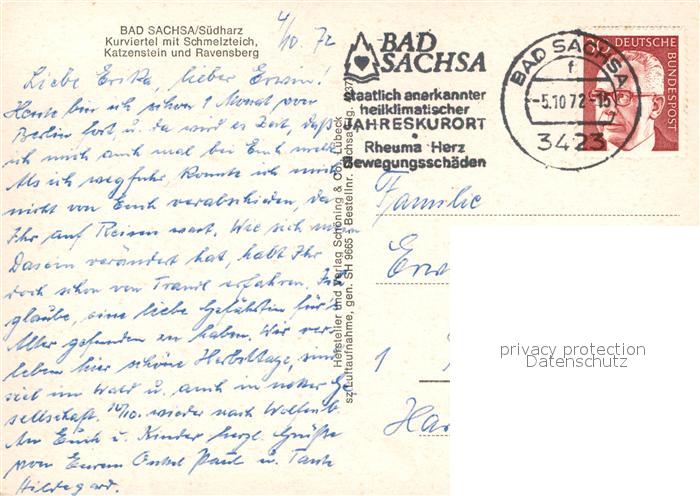 BAD SACHSA/Südharz
Kurviertel mit Schmelzteich,
Katzenstein und Ravensberg
4/10. 72
Liebe Erika, lieber Erwin!
Heute bin ich schon 1 Monat von
Berlin fort, u. da wird es Zeit, daß
ich mich auch mal bei Euch melde
Als ich wegfuhr, konnte ich mich
nicht von Euch verabschieden, da
Ihr auf Reisen wart. Wie sich mein
Dasein verändert hat, habt Ihr
doch schon von Traudl erfahren. Ich
glaube, eine liebe Gefährtin für's
Alter gefunden zu haben. Wir ver-
leben hier schöne Herbsttage, sind
viel im Wald u. auch in netter Ge
sellschaft. 10/10. wieder nach
An Euch u. Kinder herzl. Grüße
von Eurem Onkel Paul u. Tante
Hildegard.
Hersteller und Verlag Schöning & Co., Lübeck
sz/Luftaufnahme, gen. SH 9665 Bestellnr. Sachsa
BAD
SACHSA
staatlich anerkannter
heilklimatischer
JAHRESKURORT
Rheuma Herz
Bewegungsschäden
BAD SACHSA
f
-5.10 72-15
3423
DEUTSCHE
BUNDESPOST
Familie
Erw
1
Ha
privacy protection
Datenschutz